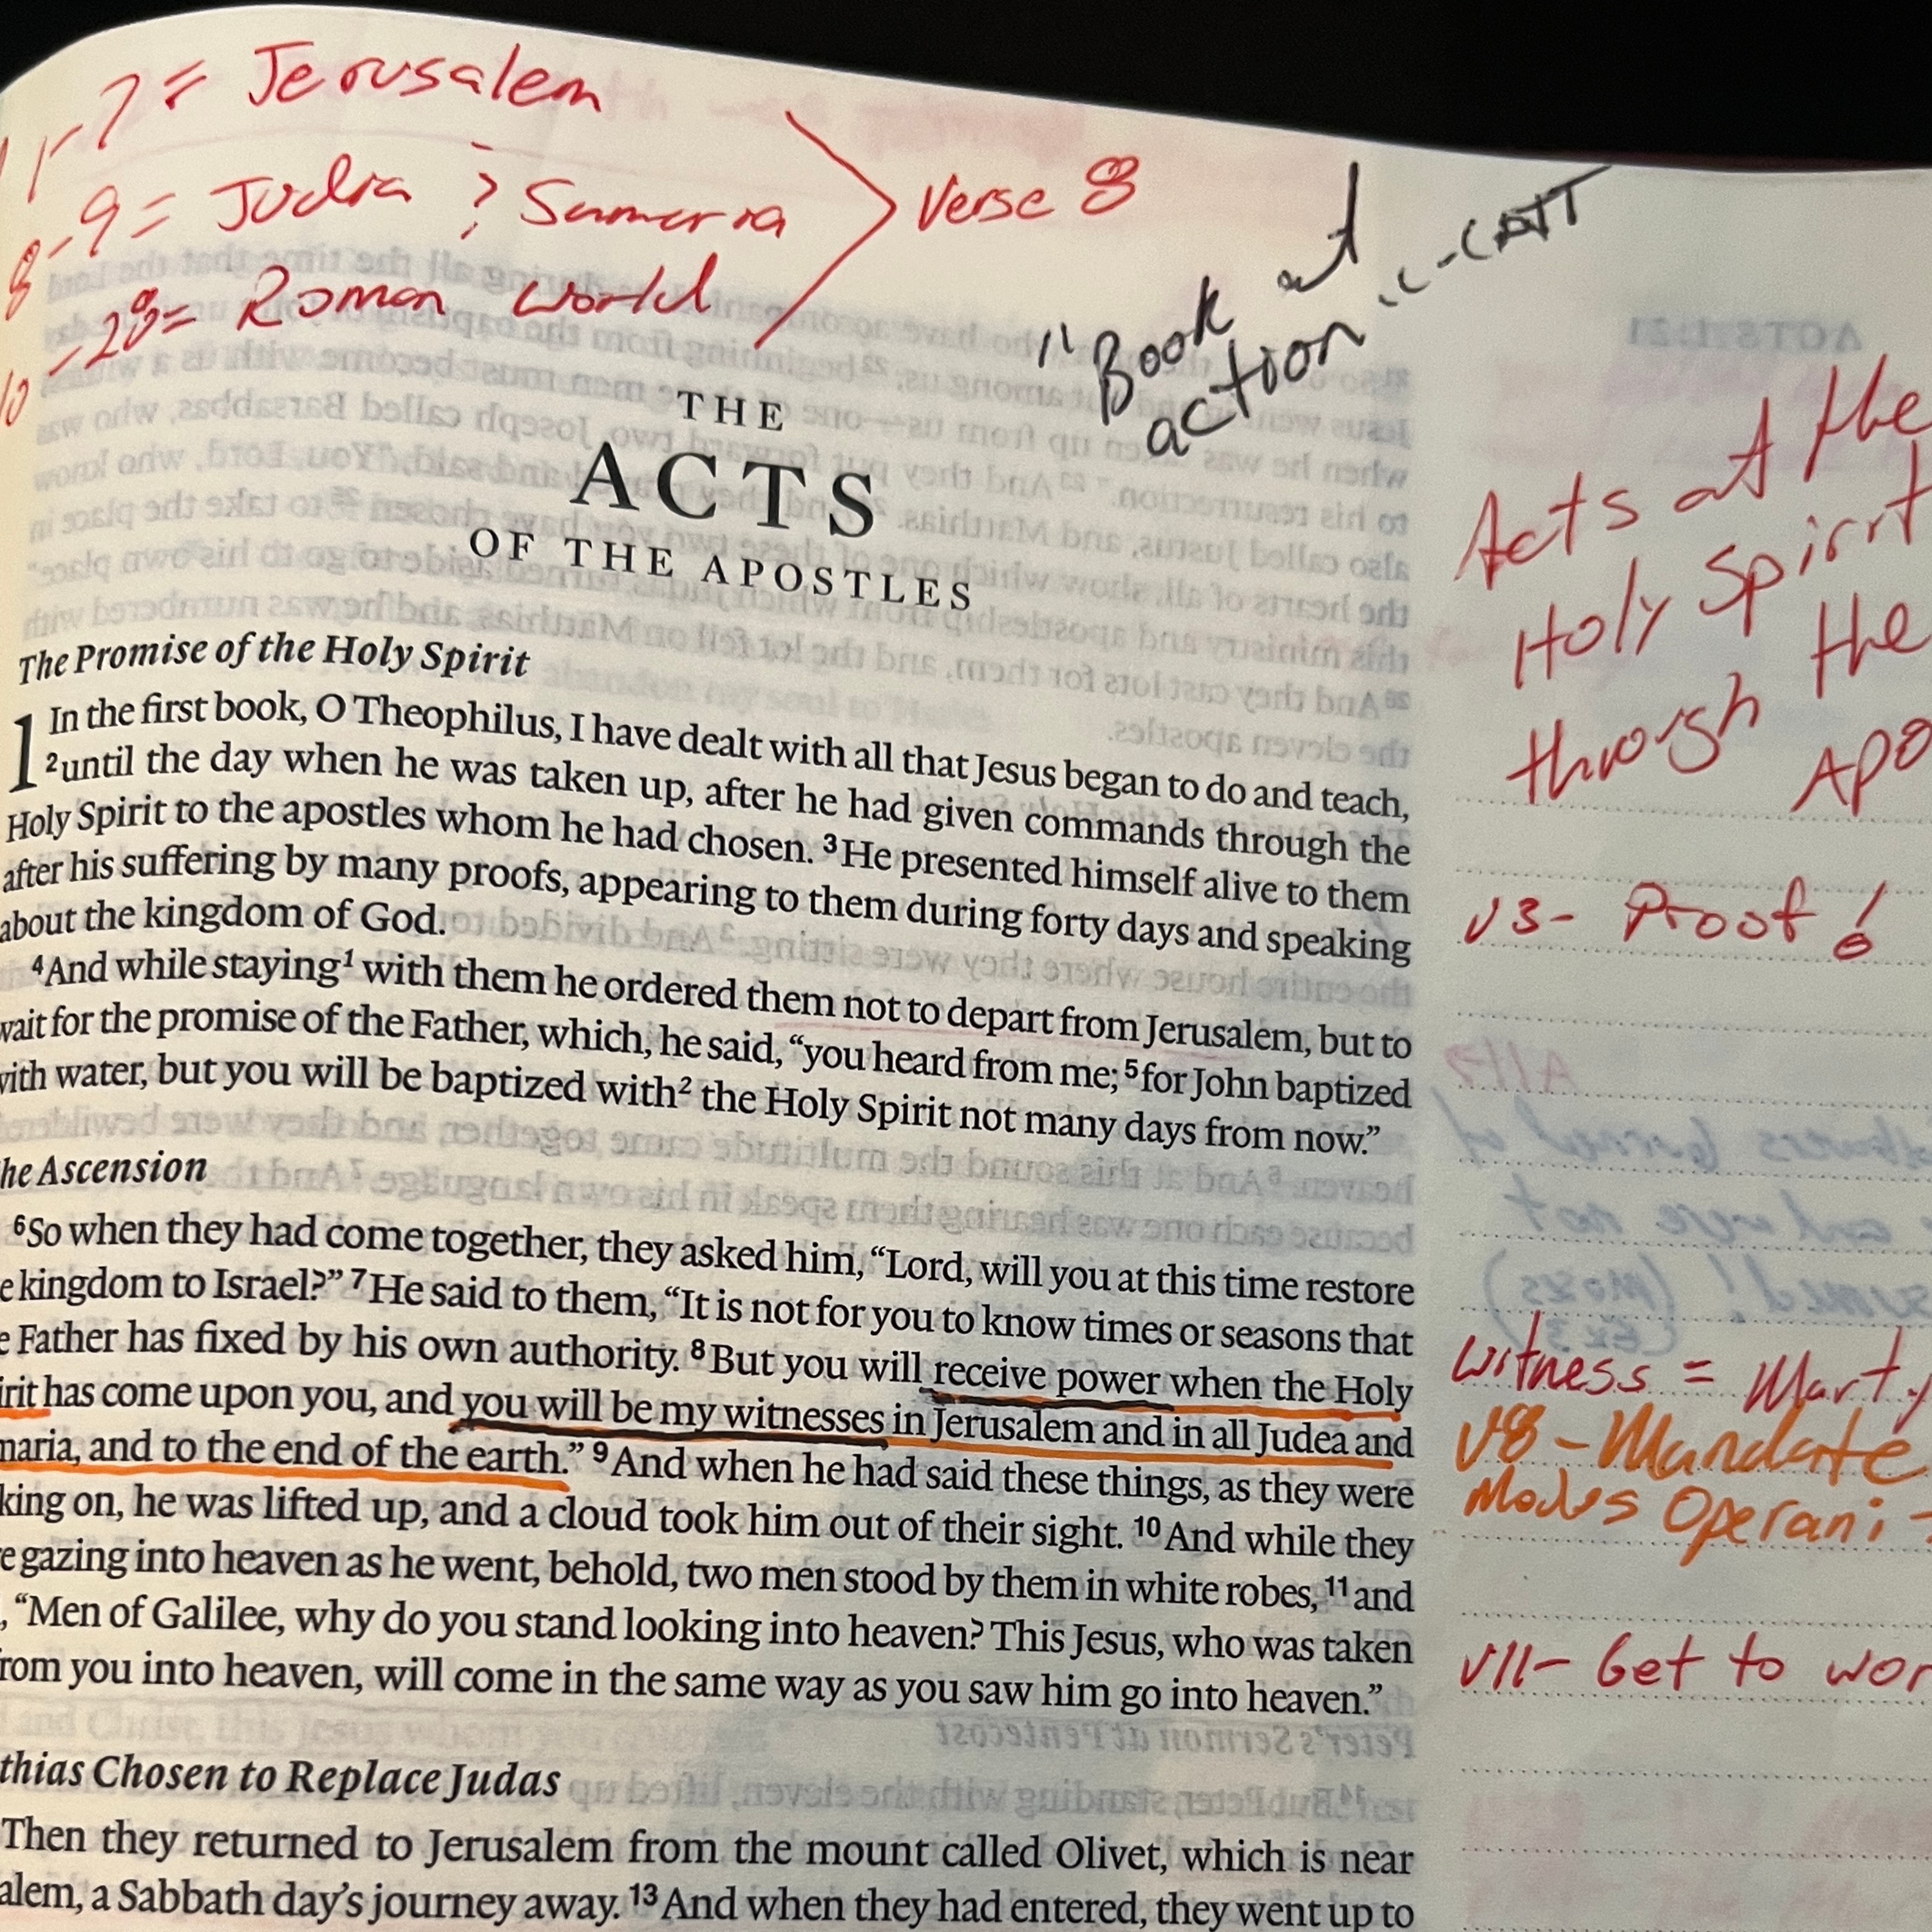 1-7 = Jerusalem
8-9 = Judia ? Samaria
10-28 = Roman World
Verse 8
"Book of
action"
THE
ACTS
OF THE APOSTLES
Acts of the
Holy Spirit
through the
Apo
The Promise of the Holy Spirit
1 In the first book, O Theophilus, I have dealt with all that Jesus began to do and teach,
2 until the day when he was taken up, after he had given commands through the
Holy Spirit to the apostles whom he had chosen. 3 He presented himself alive to them
after his suffering by many proofs, appearing to them during forty days and speaking
about the kingdom of God.
v3- Proof!
4 And while staying1 with them he ordered them not to depart from Jerusalem, but to
wait for the promise of the Father, which, he said, “you heard from me; 5 for John baptized
with water, but you will be baptized with2 the Holy Spirit not many days from now.”
he Ascension
6 So when they had come together, they asked him, “Lord, will you at this time restore
e kingdom to Israel?” 7 He said to them, “It is not for you to know times or seasons that
e Father has fixed by his own authority. 8 But you will receive power when the Holy
irit has come upon you, and you will be my witnesses in Jerusalem and in all Judea and
maria, and to the end of the earth.” 9 And when he had said these things, as they were
king on, he was lifted up, and a cloud took him out of their sight. 10 And while they
e gazing into heaven as he went, behold, two men stood by them in white robes, 11 and
, “Men of Galilee, why do you stand looking into heaven? This Jesus, who was taken
rom you into heaven, will come in the same way as you saw him go into heaven.”
witness = Marty
v8 - Mandate
Modus Operani -
v11- Get to wor
thias Chosen to Replace Judas
Then they returned to Jerusalem from the mount called Olivet, which is near
alem, a Sabbath day’s journey away. 13 And when they had entered, they went up to